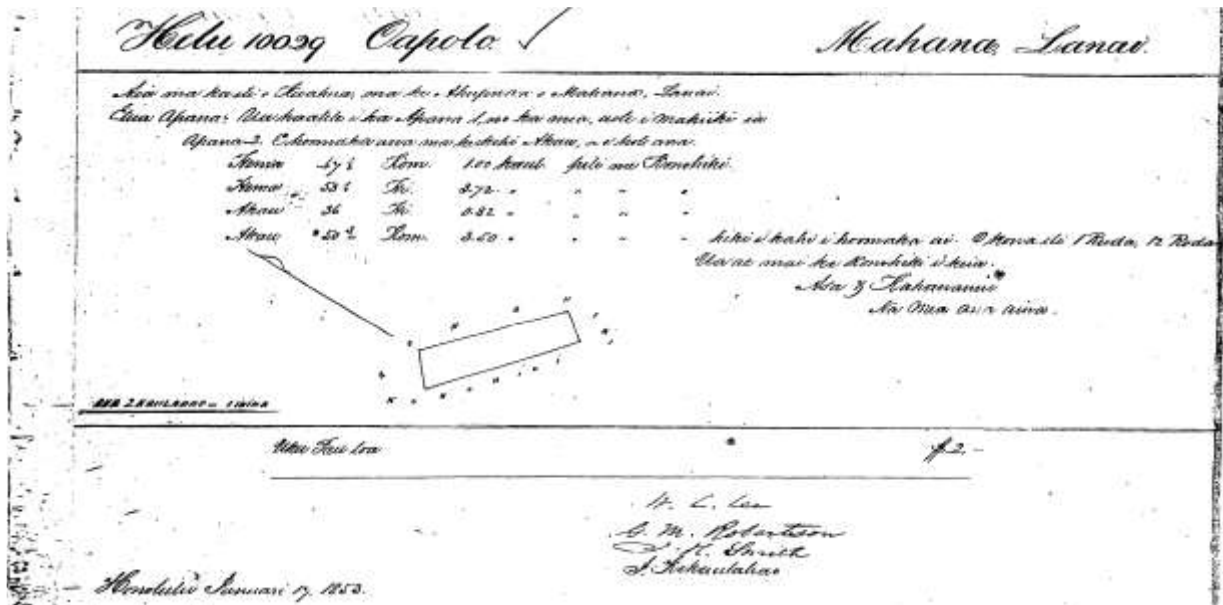 Helu 10039 Oapolo Mahana, Lanai.
Aia ma ka ili o ma ke Ahupuaa o Mahana, Lanai.
Elua Apana. i ka Apana 1, no ka mea, ua
Apana 2. E hoomaka ana ma ke kihi Akau, a e holo ana
Hema 47 1/2 Kom. 1.00 kaul. pili me Konohiki.
Hema 53 Hi. 3.72 " " " "
Akau 36 Hi. 0.82 " " " "
Akau 50 1/2 Kom. 3.50 " " " " hiki i kahi i hoomaka ai. O kona ili 1 Ruda, 12 Roda
Ua ae mai ke Konohiki i keia.
Asa
Na Mea ana aina.
Konohiki
Uku Pau loa $2.-
W. L. Lee
G. M. Robertson
J. H. Smith
J. Kekaulahao
Honolulu Januari 17, 1853.